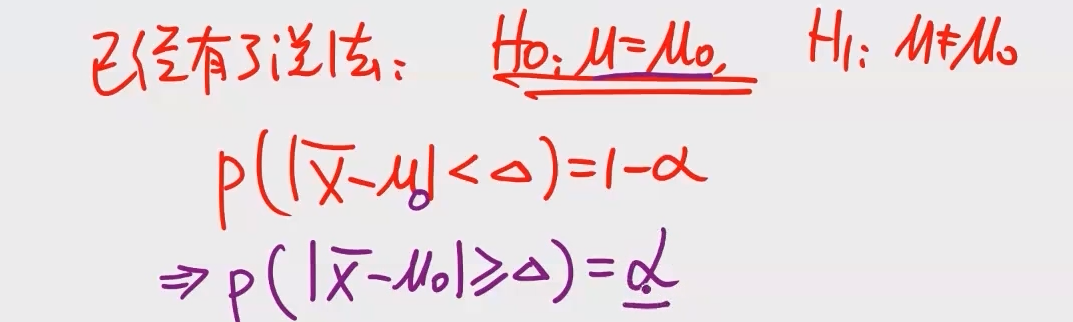 已经有了说法： H0: μ=μ0, H1: μ≠μ0
P(|X̄-μ0|<Δ)=1-α
⇒P(|X̄-μ0|≥Δ)=α